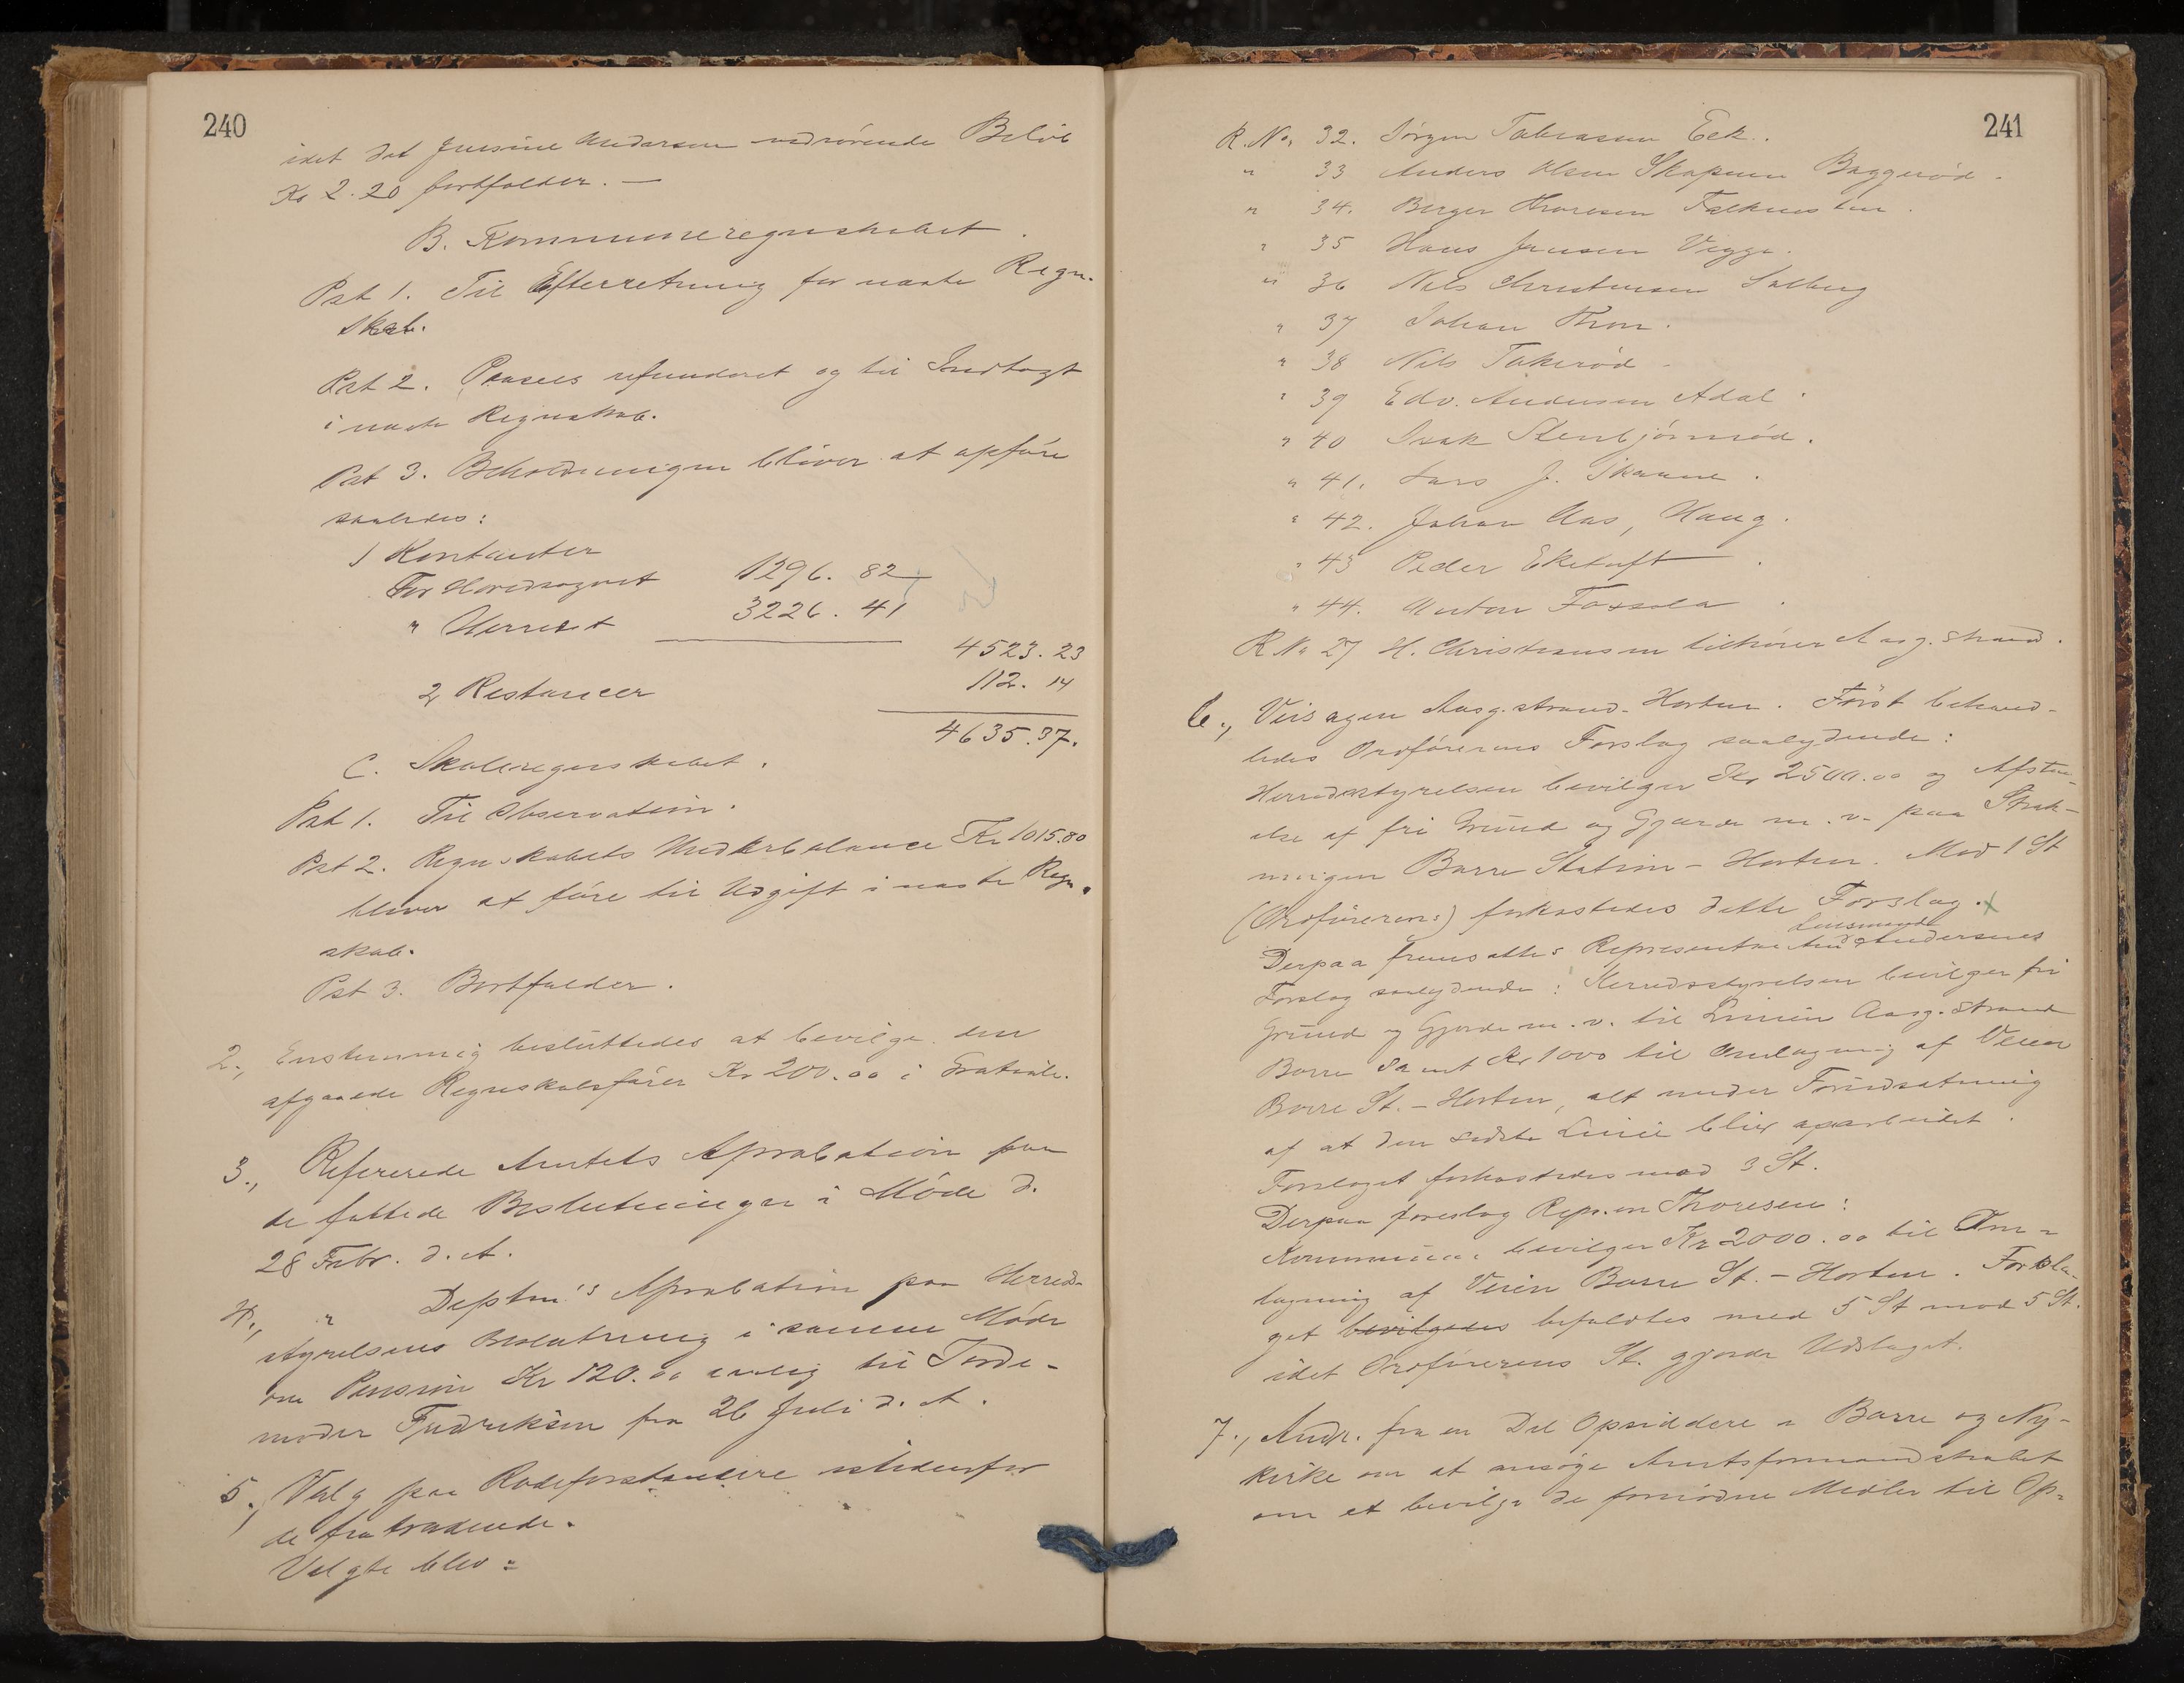 240
idet det Jensine Andersen vedrørende Beløb
Kr 2.20 bortfalder. —
B. Kommuneregnskabet.
Pst 1. Til Efterretning for næste Regn-
skab.
Pst 2. refunderet og til Indtægt
i næste Regnskab.
Pst 3. Beholdningen bliver at opføre
saaledes:
1 Kontanter
For Hovedsognet 1296. 82
" Herredet 3226. 41
4523. 23
2 Restancer 112. 14
4635.37.
C. Skoleregnskabet.
Pst 1. Til Observation.
Pst 2. Regnskabets Underbalance Kr 1015.80
bliver at føre til Udgift i næste Regn-
skab.
Pst 3. Bortfalder.
2., Enstemmig besluttedes at bevilge den
afgaaede Regnskabsfører Kr 200.00 i Gratiale.
3., Refererede Amtets Aprobation paa
de fattede Beslutninger i Møde d.
28 Febr. d. A.
4., " Deptm's Aprobation paa Herreds-
styrelsens Beslutning i samme Møde
om Pension Kr 120.00 aarlig til Jorde-
moder Fredriksen fra 26 Juli d. A.
5., Valg paa Rodeforstandere istedenfor
de fratrædende.
Valgte blev:
241
R. No. 32. Jørgen Tobiassen Eek.
" 33 Anders Olsen Skapum Baggerød.
" 34. Berger Thoresen Falkensten.
" 35 Hans Jensen Vegge.
" 36 Nils Christensen Solberg
" 37 Johan Thon.
" 38 Nils Takerød.
" 39 Edv. Andersen Adal.
" 40 Isak Stenbjørnrød.
" 41. Lars J. Skaane.
" 42. Johan Aas, Haug.
" 43 Peder Eketuft.
" 44. Anton Fossola.
R No 27 H. Christiansen tilhører Aasg.strand.
6., Veisagen Aasg.strand-Horten. Først behand-
ledes Ordførerens Forslag saalydende:
Herredsstyrelsen bevilger Kr 2500.00 og Afstaa-
else af fri Grund og Gjærde m. v. paa Stræk-
ningen Borre Station - Horten. Mod 1 St
(Ordførerens) forkastedes dette Forslag. x
Lensmand
Derpaa fremsattes Repræsentant And Andersens
Forslag saalydende: Herredsstyrelsen bevilger fri
Grund og Gjerde m. v. til Linien Aasg.strand
Borre samt Kr 1000 til Omlægning af Veien
Borre St. - Horten, alt under Forudsætning
af at den sidste Linie blir oparbeidet.
Forslaget forkastedes mod 3 St.
Derpaa foreslog Repr.en Thoresen:
Kommunen bevilger Kr 2000.00 til Om-
lægning af Veien Borre St. - Horten. Forsla-
get bevilgedes befaldtes med 5 St mod 5 St.
idet Ordførerens St. gjorde Udslaget.
7., Andr. fra en Del Opsiddere i Borre og Ny-
kirke om at ansøge Amtsformandskabet
om at bevilge de fornødne Midler til Op-